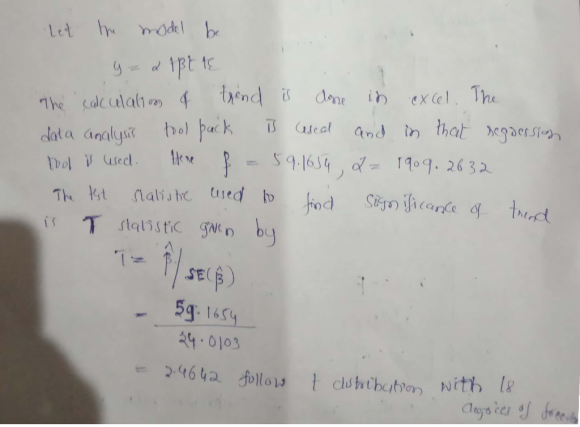 Let the model be
y = α + βt + ε
The calculation of trend is done in excel. The
data analysis tool pack is used and in that regression
tool is used. Here β̂ = 59.1654, α̂ = 1909.2632
The test statistic used to find significance of trend
is T statistic given by
T = β̂ / SE(β̂)
= 59.1654
24.0103
= 2.4642 follows t distribution with 18
degrees of freedom